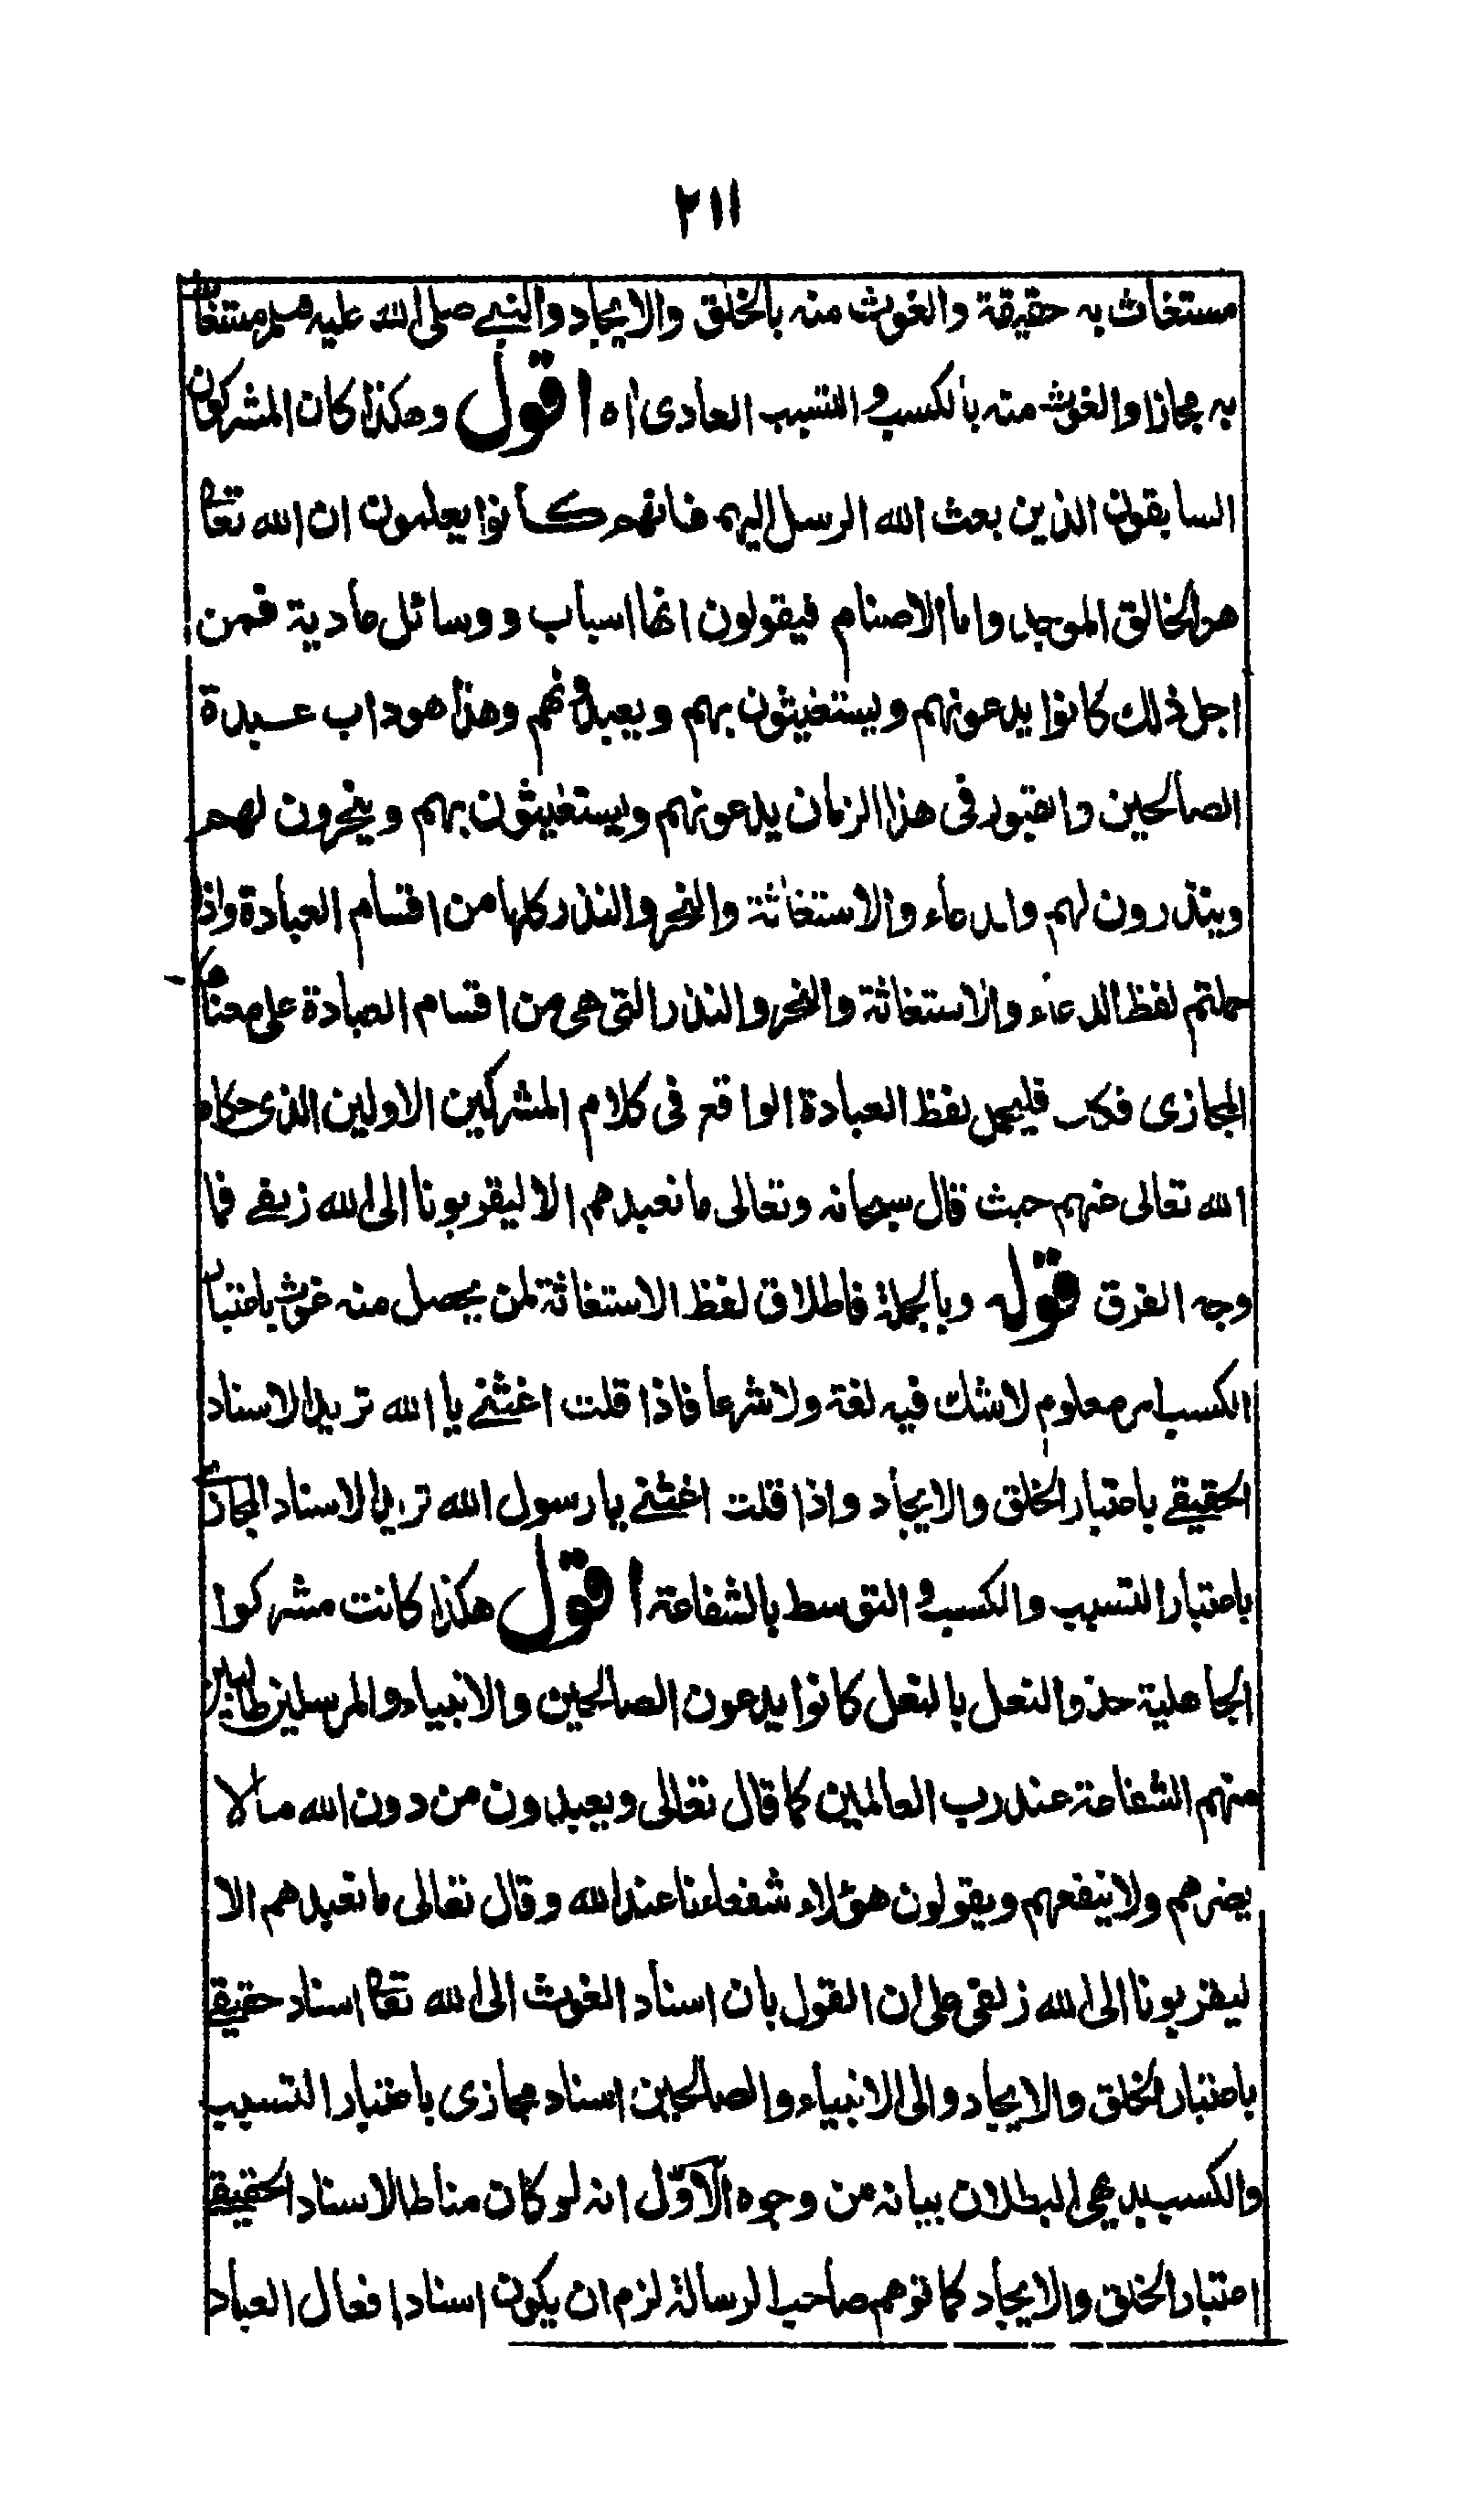 ٢١١
مستغاث به حقيقة والغوث منه بالخلق والايجاد والنبي صلى الله عليه وسلم مستغاث
به مجازا والغوث منه بالكسب والتسبب العادى اه اقول وهكذا كان المشركون
السابقون الذين بعث الله الرسل اليهم فانهم كانوا يعلمون ان الله تعا
هو الخالق الموجد واما الاصنام فيقولون انها اسباب ووسائل عادية فمن
اجل ذلك كانوا يدعونهم ويستغيثون بهم ويعبدونهم وهذا هو داب عبدة
الصالحين والقبور فى هذا الزمان يدعونهم ويستغيثون بهم وينحرون لهم
وينذرون لهم والدعاء والاستغاثة والنحر والنذر كلها من اقسام العبادة واذا
حملتم لفظ الدعاء والاستغاثة والنحر والنذر التى هى من اقسام العبادة على معناه
المجازى فكيف فليحمل لفظ العبادة الواقع فى كلام المشركين الاولين الذى حكاه
الله تعالى عنهم حيث قال سبحانه وتعالى ما نعبدهم الا ليقربونا الى الله زلفے فما
وجه الفرق قوله وبالجملة فاطلاق لفظ الاستغاثة لمن يحصل منه غوث باعتبار
الكسب امر معلوم لاشك فيه لغة ولا شرعا فاذا قلت اغثنے يا الله تريد الاسناد
الحقيقے باعتبار الخلق والايجاد واذا قلت اغثنے يا رسول الله تريد الاسناد المجازے
باعتبار التسبب والكسب والتوسط بالشفاعة اقول هكذا كانت مشركوا
الجاهلية حذو النعل بالنعل كانوا يدعون الصالحين والانبياء والمرسلين طالبين
منهم الشفاعة عند رب العالمين كما قال تعالى ويعبدون من دون الله مالا
يضرهم ولا ينفعهم ويقولون هؤلاء شفعاءنا عند الله وقال تعالى ما نعبدهم الا
ليقربونا الى الله زلفى على ان القول بان اسناد الغوث الى الله تعا اسناد حقيقے
باعتبار الخلق والايجاد والى الانبياء والصالحين اسناد مجازى باعتبار التسبب
والكسب بدهى البطلان بيانه من وجوه الاوّل انه لو كان مناط الاسناد الحقيقے
اعتبار الخلق والايجاد كما توهم صاحب الرسالة لزم ان يكون اسناد افعال العباد